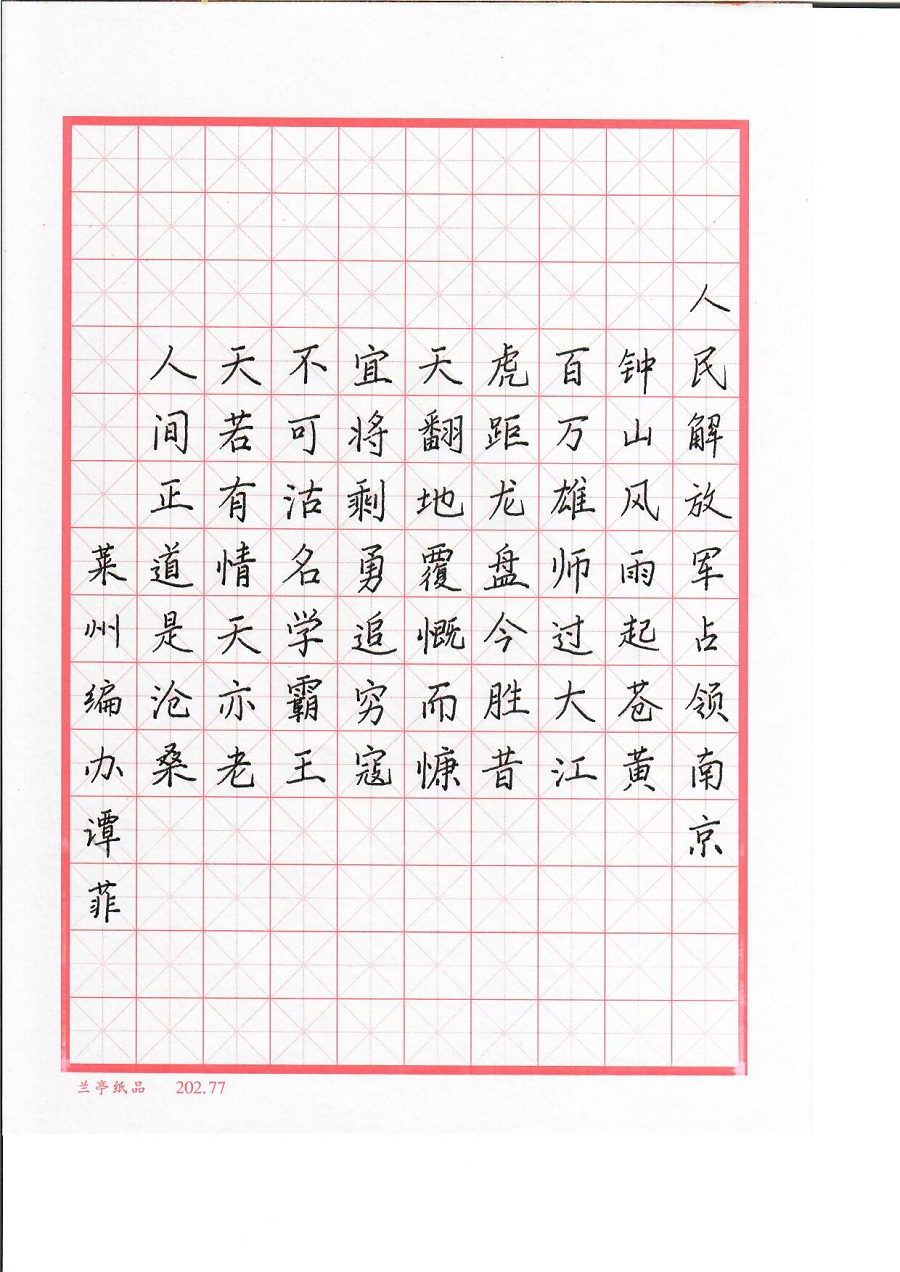 人民解放军占领南京
钟山风雨起苍黄
百万雄师过大江
虎距龙盘今胜昔
天翻地覆慨而慷
宜将剩勇追穷寇
不可沽名学霸王
天若有情天亦老
人间正道是沧桑
莱州编办谭菲
兰亭纸品 202.77